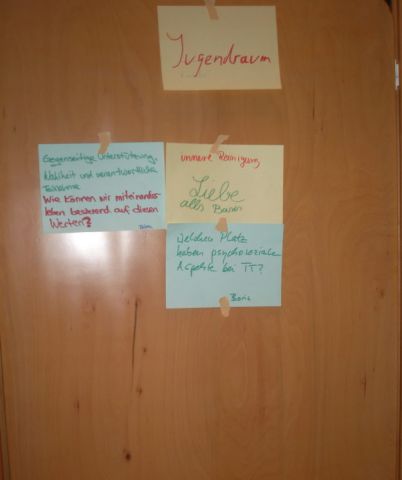 Jugendraum
Gegenseitige Unterstützung,
Wahlheit und verantwortliche
Teilnahme
Wie können wir miteinander
leben basierend auf diesen
Werten?
innere Reinigung
Liebe
als Basis
Welchen Platz
haben psychosoziale
Aspekte bei TT?